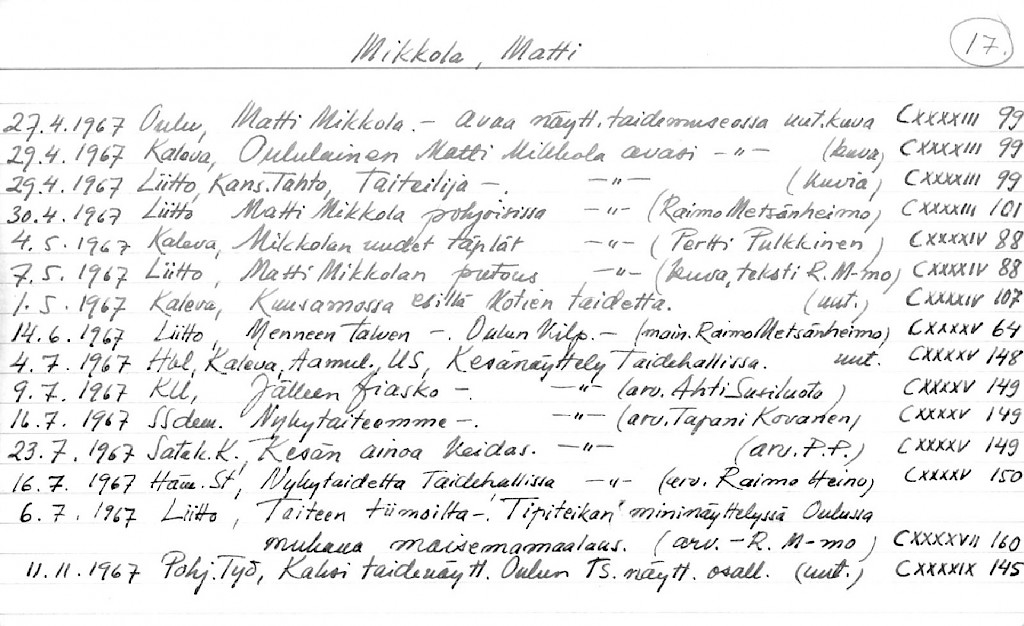 Mikkola, Matti 17.
27.4.1967 Oulu, Matti Mikkola.- avaa näytt. taidemuseossa uut.kuva CXXXXIII 99
29.4.1967 Kaleva, Oululainen Matti Mikkola avasi -"- (kuva) CXXXXIII 99
29.4.1967 Liitto, Kans.Tahto, Taiteilija -. -"- (kuvia) CXXXXIII 99
30.4.1967 Liitto Matti Mikkola pohjoisissa -"- (Raimo Metsänheimo) CXXXXIII 101
4.5.1967 Kaleva, Mikkolan uudet täplät -"- (Pertti Pulkkinen) CXXXXIV 88
7.5.1967 Liitto, Matti Mikkolan putous -"- (kuva, teksti R. M-mo) CXXXXIV 88
1.5.1967 Kaleva, Kuusamossa esillä kotien taidetta. (uut.) CXXXXIV 107
14.6.1967 Liitto, Menneen talven -. Oulun Kilp.- (main. Raimo Metsänheimo) CXXXXV 64
4.7.1967 Hbl, Kaleva, Aamul., US, Kesänäyttely Taidehallissa. uut. CXXXXV 148
9.7.1967 KU, Jälleen fiasko -. -"- (arv. Ahti Susiluoto) CXXXXV 149
16.7.1967 SSdem. Nykytaiteomme -. -"- (arv. Tapani Kovanen) CXXXXV 149
23.7.1967 Satak.K., Kesän ainoa keidas. -"- (arv. P.P.) CXXXXV 149
16.7.1967 Häm.St, Nykytaidetta Taidehallissa -"- (arv. Raimo Heino) CXXXXV 150
6.7.1967 Liitto, Taiteen tiimoilta -. 'Tipiteikari' mininäyttelyssä Oulussa
mukana maisemamaalaus. (arv. - R. M-mo) CXXXXVII 160
11.11.1967 Pohj.Työ, Kaksi taidenäytt. Oulun TS. näytt. osall. (uut.) CXXXXIX 145